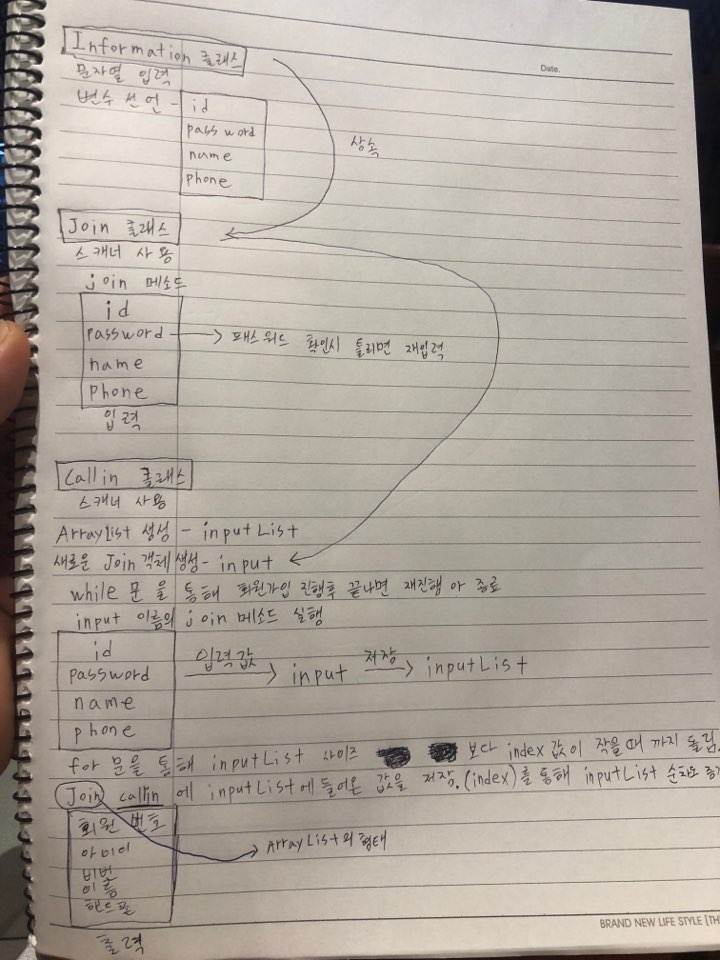 Information 클래스
Date.
문자열 입력
변수 선언 - id
password
name
phone
상속
Join 클래스
스캐너 사용
join 메소드
id
password → 패스워드 확인시 틀리면 재입력
name
phone
입력
Callin 클래스
스캐너 사용
ArrayList 생성 - inputList
새로운 Join 객체 생성 - input
while 문을 통해 회원가입 진행후 끝나면 재진행 or 종료
input 이름의 join 메소드 실행
id
password 입력값 → input 저장 → inputList
name
phone
for 문을 통해 inputList 사이즈 보다 index 값이 작을때 까지 돌림.
Join callin 에 inputList에 들어온 값을 저장. (index)를 통해 inputList 순차로
회원 번호
아이디
비번
이름
핸드폰
ArrayList의 형태
출력
BRAND NEW LIFE STYLE [TH